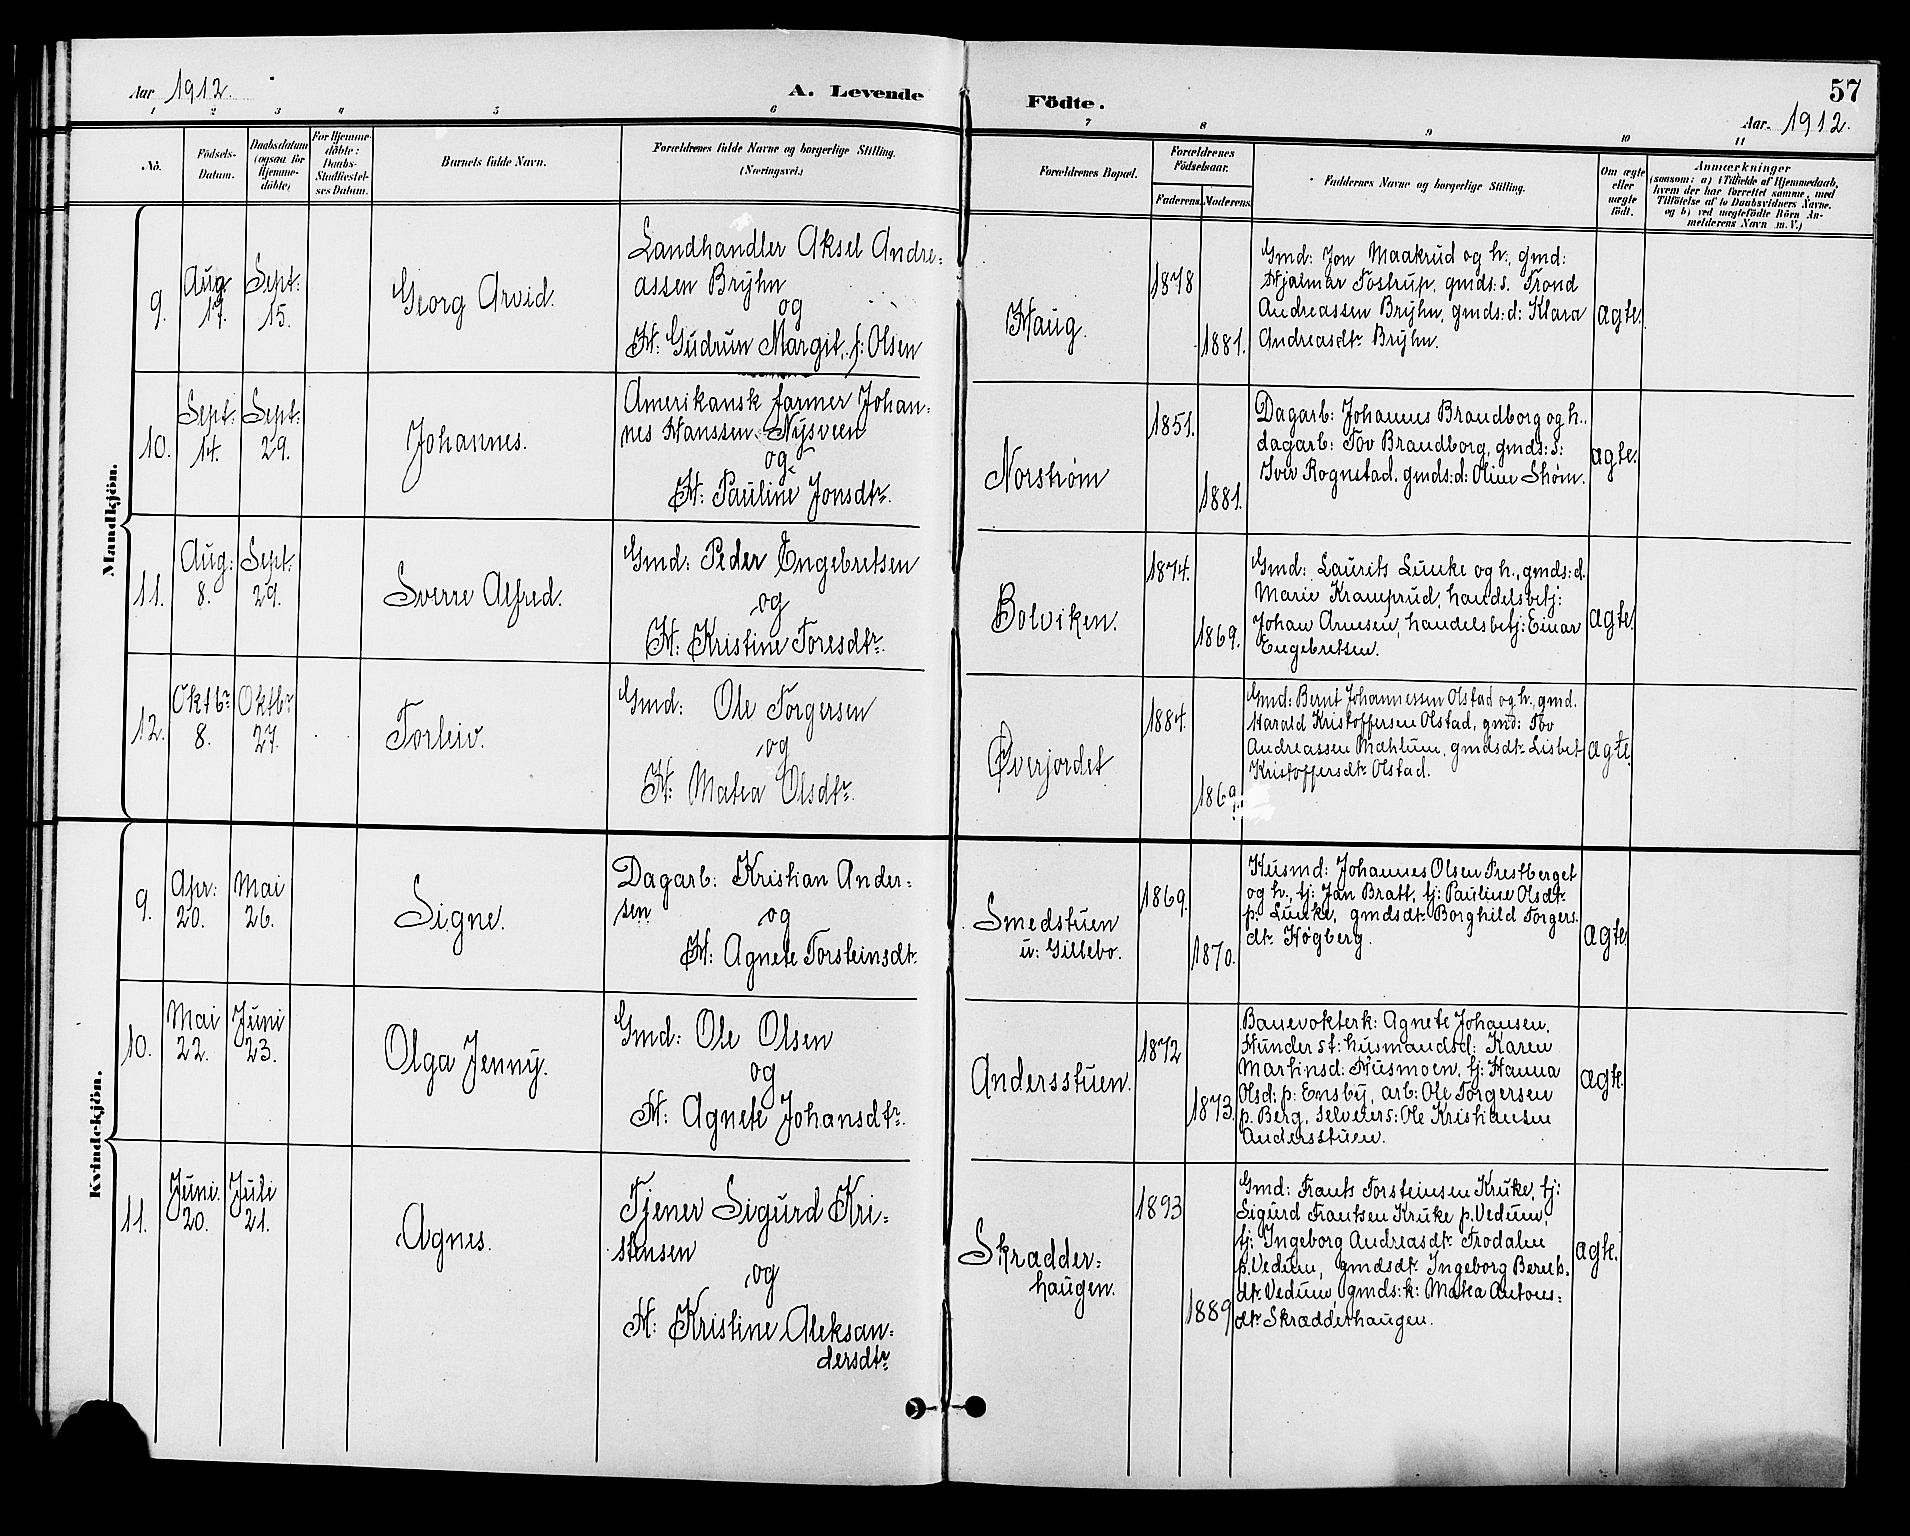 Aar 1912.
A. Levende
Födte.
57
Aar. 1912.
1 2 3 4 5 6 7 8 9 10 11
No.
Födsels-
Datum.
Daabsdatum
(ogsaa for
Hjemme-
döbte)
For Hjemme-
döbte:
Daabs-
Stadfæstel-
ses Datum.
Barnets fulde Navn.
Forældrenes fulde Navne og borgerlige Stilling.
(Næringsvei.)
Forældrenes Bopæl.
Forældrenes
Födselsaar.
Faderens.
Moderens.
Faddernes Navne og borgerlige Stilling.
Om ægte
eller
uægte
födt.
Anmærkninger
(saasom: a) i Tilfælde af Hjemmedaab,
hvem der har forrettet samme, med
Tilföielse af to Daabsvidners Navne.
og b) ved uægtefödte Börn An-
melderens Navn m.V.)
Mandkjön.
9.
Aug
17.
Sept:
15.
Georg Arvid.
Landhandler Aksel Andre:
assen Bryhn
og
H: Gudrun Margit, f: Olsen
Haug.
1878
1881.
Gmd: Jon Maakrud og h., gmd:
Hjalmar Tostrup, gmds: s. Trond
Andreassen Bryhn, gmds: d: Klara
Andreasdtr. Bryhn.
ægte.
10.
Sept:
14.
Sept:
29.
Johannes.
Amerikansk farmer Johan:
nes Hanssen Nysveen
og
H: Pauline Jonsdtr.
Norstrøm
1851.
1881.
Dagarb: Johannes Brandborg og h.,
dagarb: Tov Brandborg, gmds: s:
Iver Rognstad, gmds: d: Oline Strøm.
ægte.
11.
Aug:
8.
Sept:
29.
Sverre Alfred.
Gmd: Peder Engebretsen
og
H: Kristine Toresdtr.
Bolviken.
1874.
1869.
Gmd: Laurits Lunke og h., gmds: d.
Marie Kramprud, handelsbetj:
Johan Arnesen, handelsbetj: Einar
Engebretsen.
ægte.
12.
Oktbr
8.
Oktbr
27.
Torleiv.
Gmd: Ole Torgersen
og
H: Matea Olsdtr.
Øverjordet
1884.
1869.
Gmd: Bernt Johannessen Olstad og h., gmd.
Harald Kristoffersen Olstad, gmd: Tov
Andreassen Mæhlum, gmdsdtr. Lisbet
Kristoffersdtr. Olstad.
ægte.
Kvindekjön.
9.
Apr:
20.
Mai
26.
Signe.
Dagarb: Kristian Ander:
sen
og
H: Agnete Torsteinsdtr.
Smedstuen
u: Gillebo.
1869.
1870.
Husmd: Johannes Olsen Prestberget
og h., tj: Jan Bratt, tj: Pauline Olsdtr.
p. Lunke, gmdsdtr. Borghild Torgers
dtr. Høgberg.
ægte.
10.
Mai
22.
Juni
23.
Olga Jenny.
Gmd: Ole Olsen
og
H: Agnete Johansdtr.
Andersstuen.
1872
1873.
Banevokterk: Agnete Johansen,
Hunder st: husmandsd: Karen
Martinsd: Husmoen, tj: Hanna
Olsd: p: Ensby, arb: Ole Torgersen
p. Berg, selveiers: Ole Kristiansen
Andersstuen.
ægte.
11.
Juni.
20.
Juli
21.
Agnes.
Tjener Sigurd Kri:
stensen
og
H: Kristine Aleksan:
dersdtr.
Skrædder:
haugen.
1893
1889
Gmd: Frants Torsteinsen Kruke, tj:
Sigurd Frantsen Kruke p. Vedum,
tj: Ingeborg Andreasdtr. Frodalen
p. Vedum, gmdsdtr. Ingeborg
dtr. Vedum, gmds: k: Matea Antons:
dtr. Skrædderhaugen.
ægte.